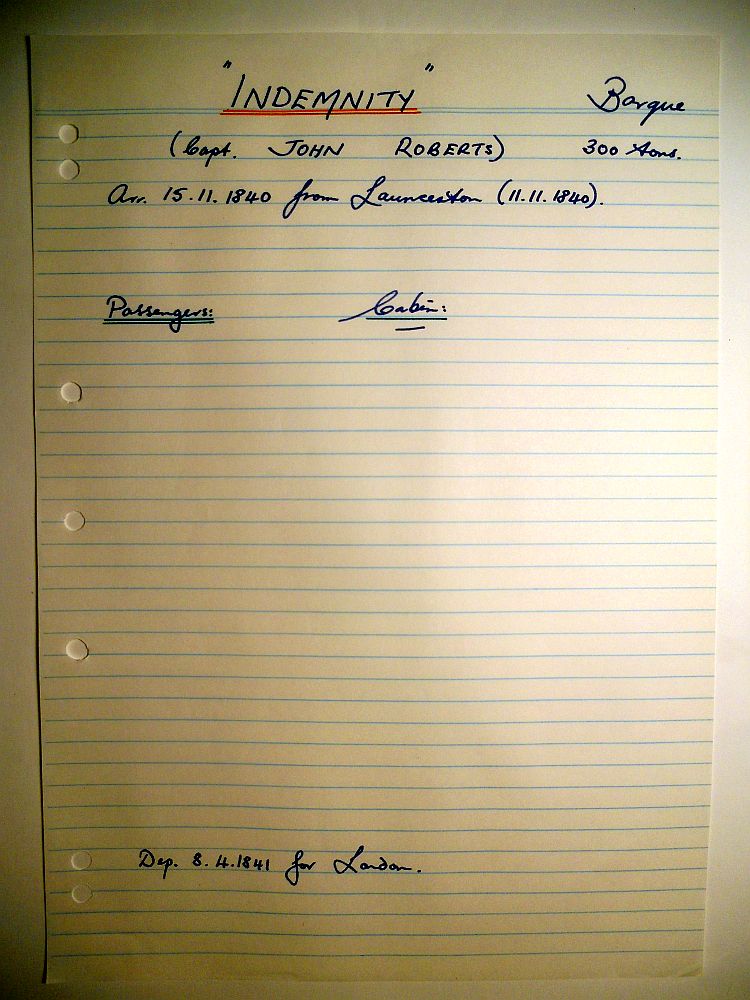 "INDEMNITY" Barque
(Capt. JOHN ROBERTS) 300 Tons.
Arr. 15.11.1840 from Launceston (11.11.1840).
Passengers: Cabin:
Dep. 8.4.1841 for London.